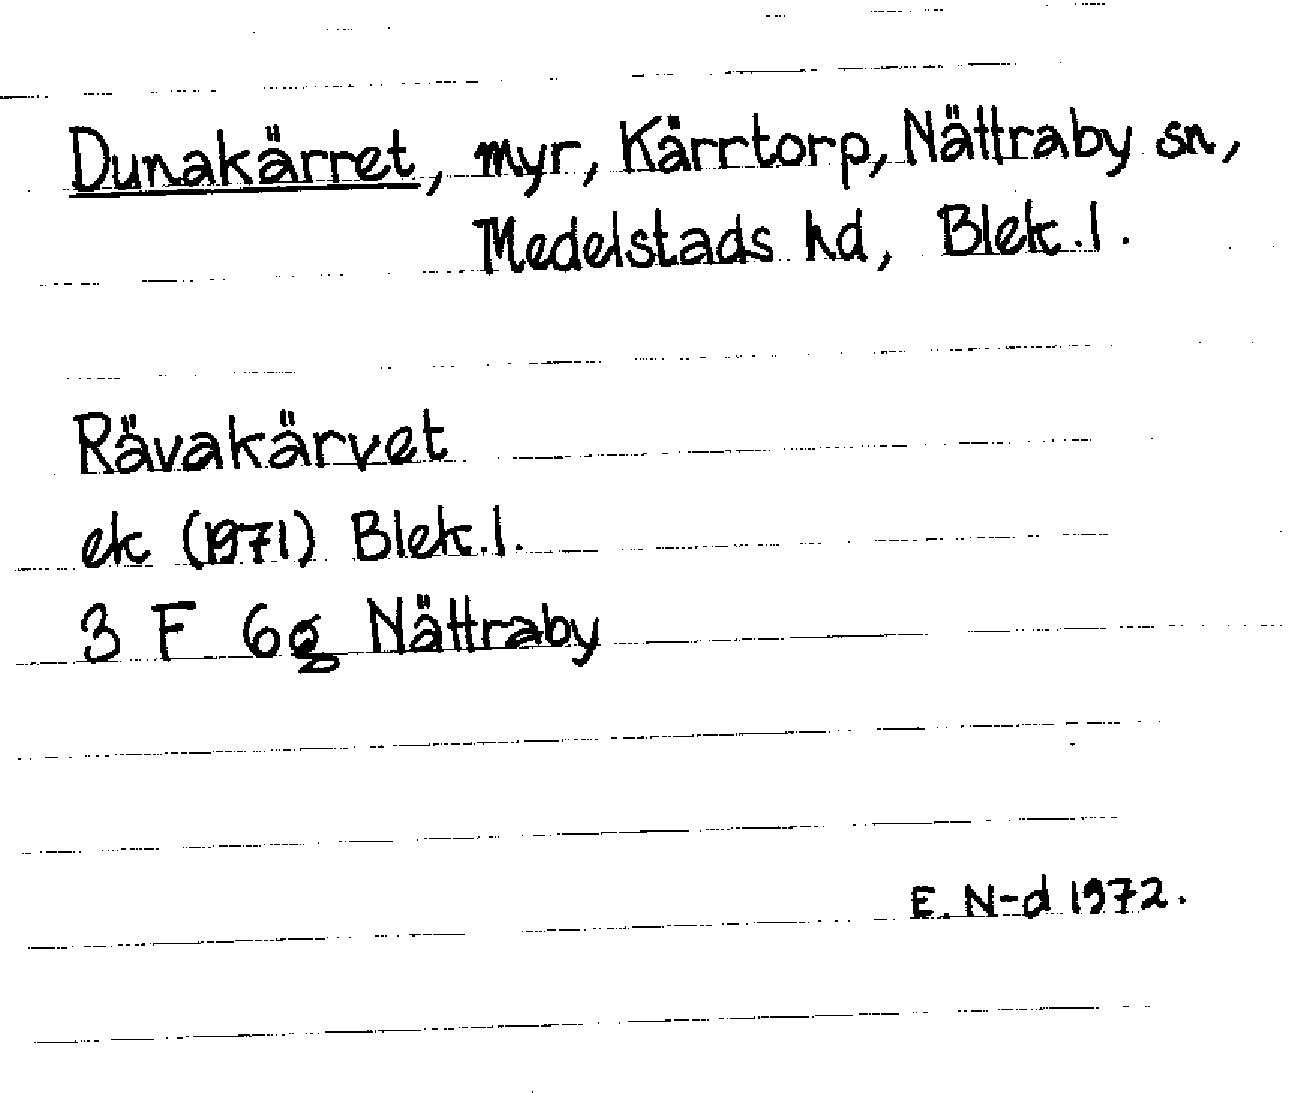 Dunakärret, myr, Kärrtorp, Nättraby sn,
Medelstads hd, Blek.l.
Rävakärvet
ek (1971) Blek.l.
3 F 6g Nättraby
E. N-d 1972.